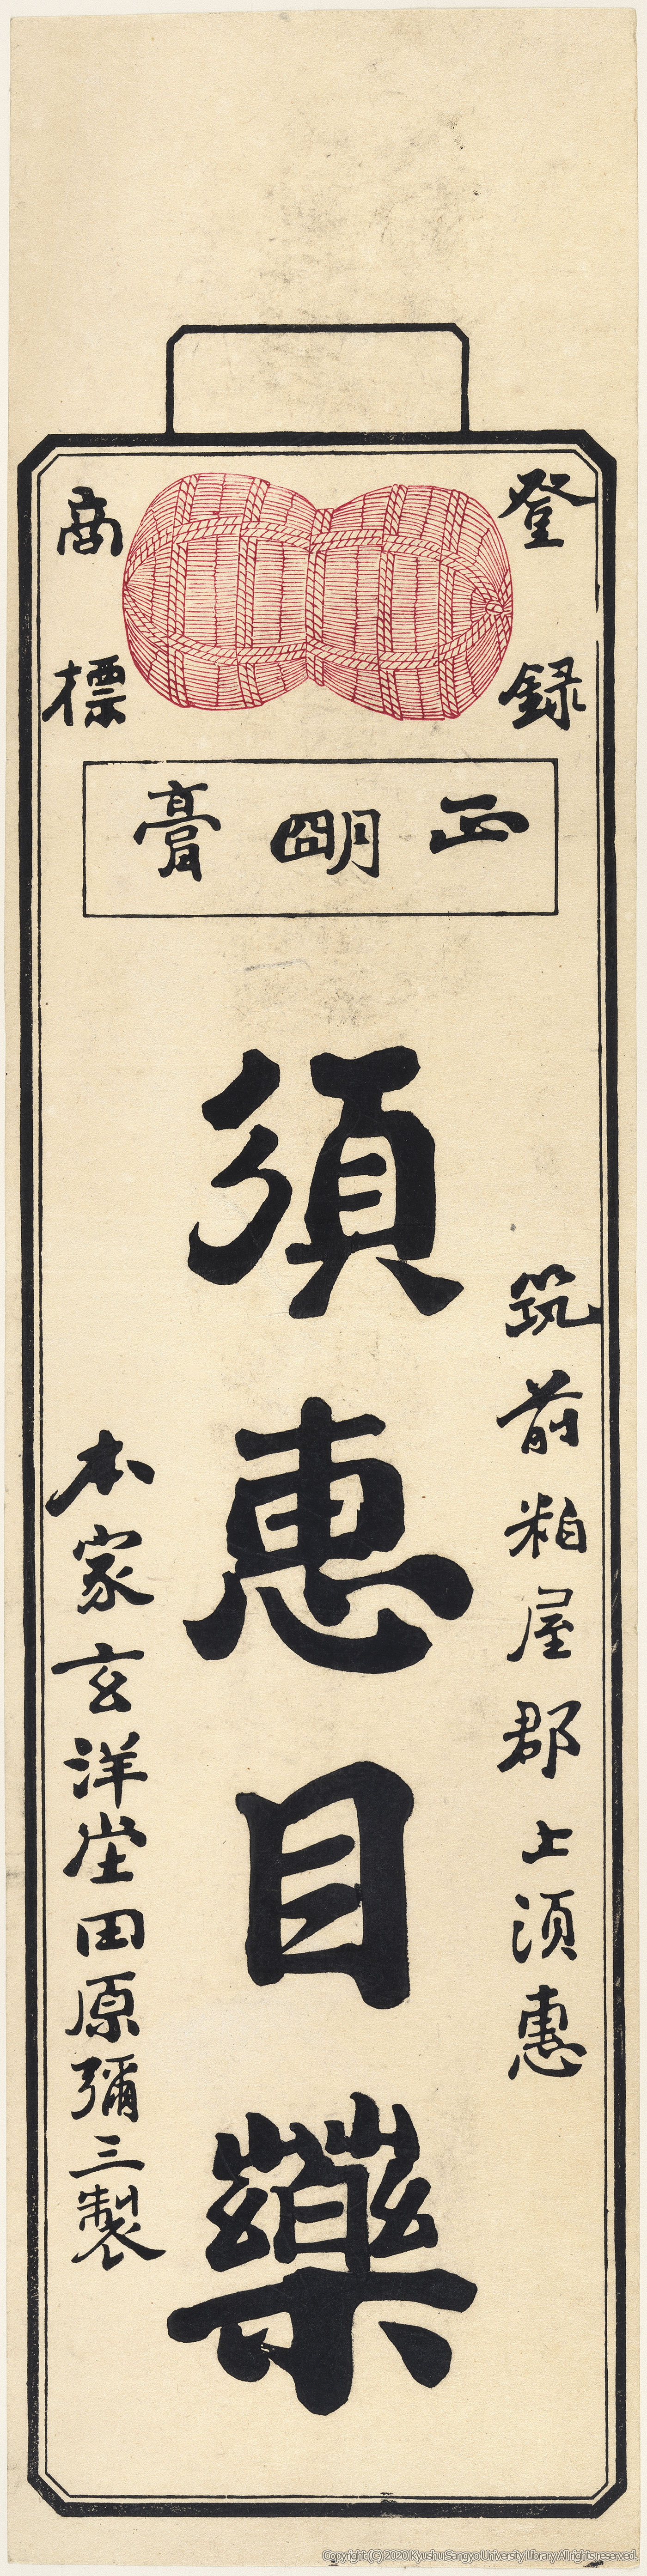 登録
商標
正朙膏
筑前粕屋郡上須惠
須惠目藥
本家玄洋堂田原彌三製
Copyright (C) 2020 Kyushu Sangyo University Library All rights reserved.